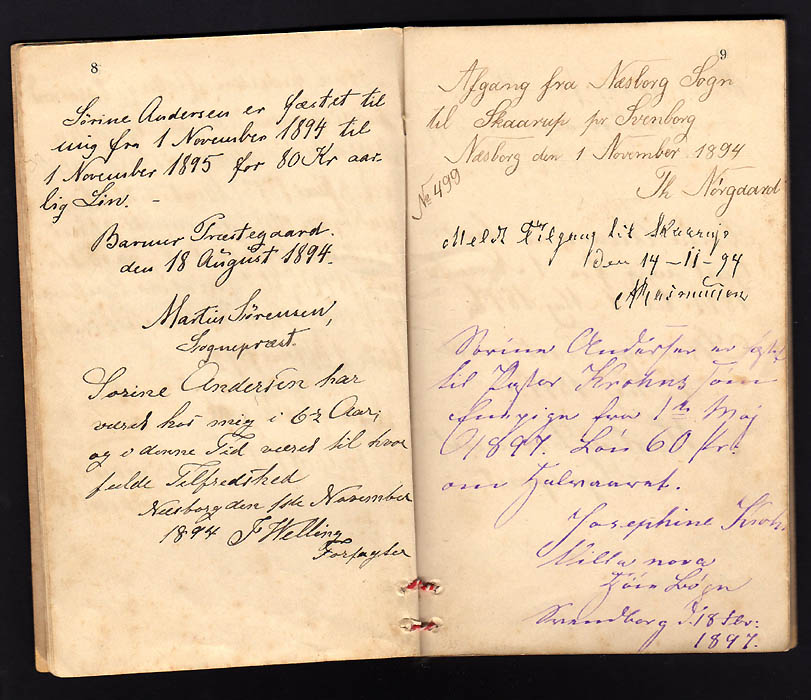 8
Sørine Andersen er fæstet til
mig fra 1 November 1894 til
1 November 1895 for 80 Kr aar-
lig Løn. -
Barmer Præstegaard.
den 18 August 1894.
Martin Sørensen,
Sognepræst.
Sørine Andersen har
været hos mig i 6½ Aar;
og i denne Tid været til
fulde Tilfredshed
Næsborg den 1ste November
1894 J Welling
Forpagter
9
Afgang fra Næsborg Sogn
til Skaarup pr Svenborg
Næsborg den 1 November 1894
Th. Nørgaard
No 499
Meldt Tilgang til Skaarup
den 14-11-94
Rasmussen
Sørine Andersen er fæstet
til Pastor Krohns som
fra 1ste Maj
1897. Løn 60 Kr.
om Halvaaret.
Josephine Krohn
Villa nova
Svendborg d. 18 Feb:
1897.